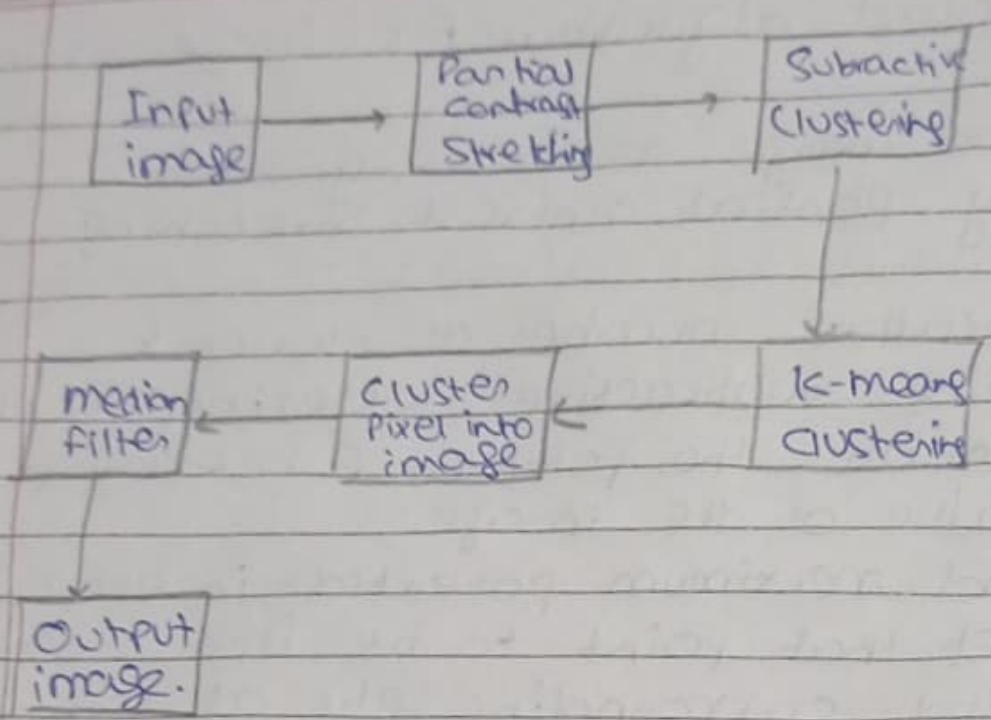 Input
image
Partial
contrast
Stretching
Subractive
Clustering
K-means
Clustering
Cluster
Pixel into
image
median
filter
Output
image.